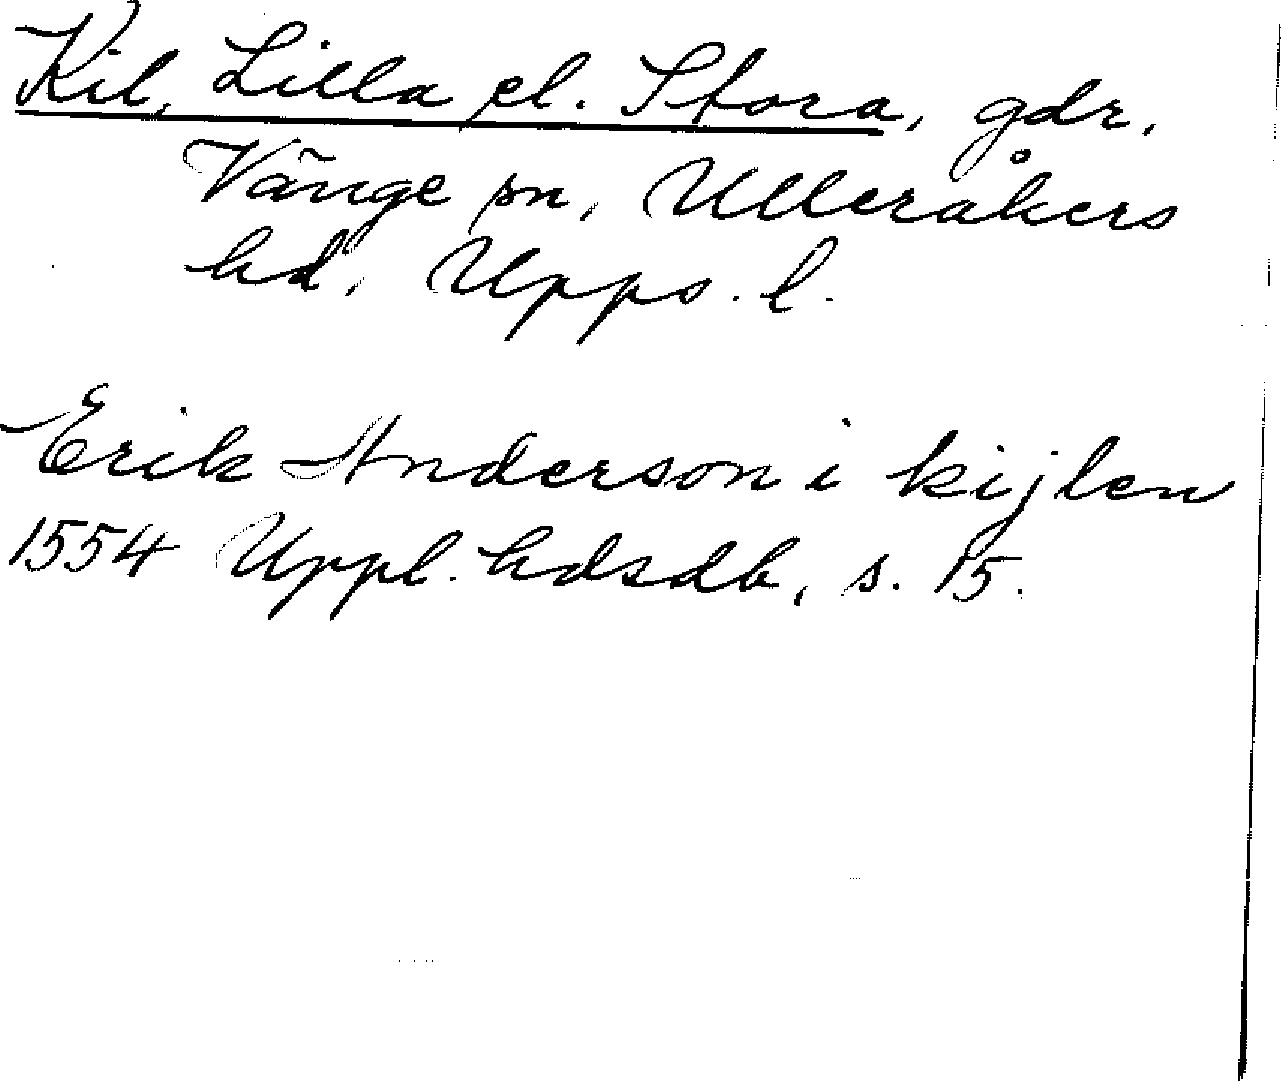 Kil, Lilla el. Stora, gdr,
Vänge sn, Ulleråkers
hd, Upps. l.
Erik Anderson i kijlen
1554 Uppl. hdsdb, s. 15.